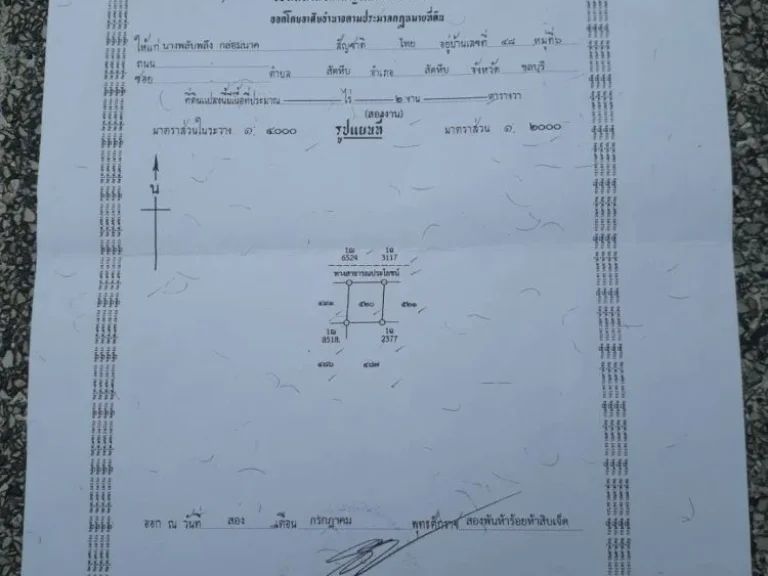 ออกโดยอาศัยอำนาจตามประมวลกฎหมายที่ดิน
ให้แก่ นางพลับพลึง กล่อมนาค สัญชาติ ไทย อยู่บ้านเลขที่ ๔๘ หมู่ที่ ๖
ถนน
ซอย ตำบล สัตหีบ อำเภอ สัตหีบ จังหวัด ชลบุรี
ที่ดินแปลงนี้มีเนื้อที่ประมาณ ไร่ ๒ งาน ตารางวา
(สองงาน)
มาตราส่วนในระวาง ๑: ๔๐๐๐ รูปแผนที่ มาตราส่วน ๑: ๒๐๐๐
น
6524 3117
ทางสาธารณประโยชน์
๕๒๐ ๕๒๑
8518 2377
๔๘๖ ๔๘๗
ออก ณ วันที่ สอง เดือน กรกฎาคม พุทธศักราช สองพันห้าร้อยห้าสิบเจ็ด